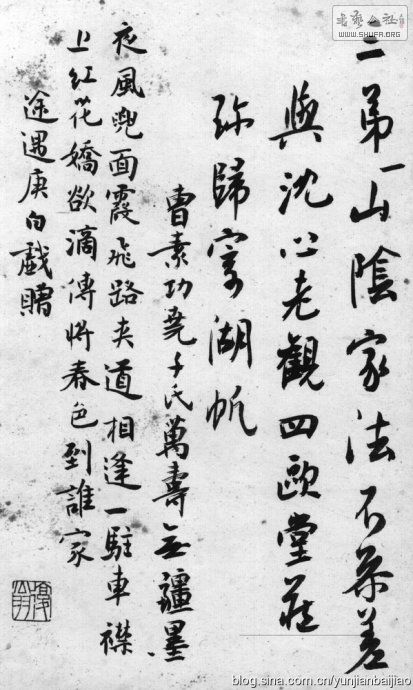 書藝公社
WWW.SHUFA.ORG
二弟一山陰家法不差
與沈心老觀四歐堂
歸湖帆
曹素功堯千氏萬壽無疆墨
夜風兜面霞飛路夾道相逢一駐車襟
上紅花嬌欲滴傳將春色到誰家
途遇庚白戲贈
blog.sina.com.cn/yunjianbaijiao